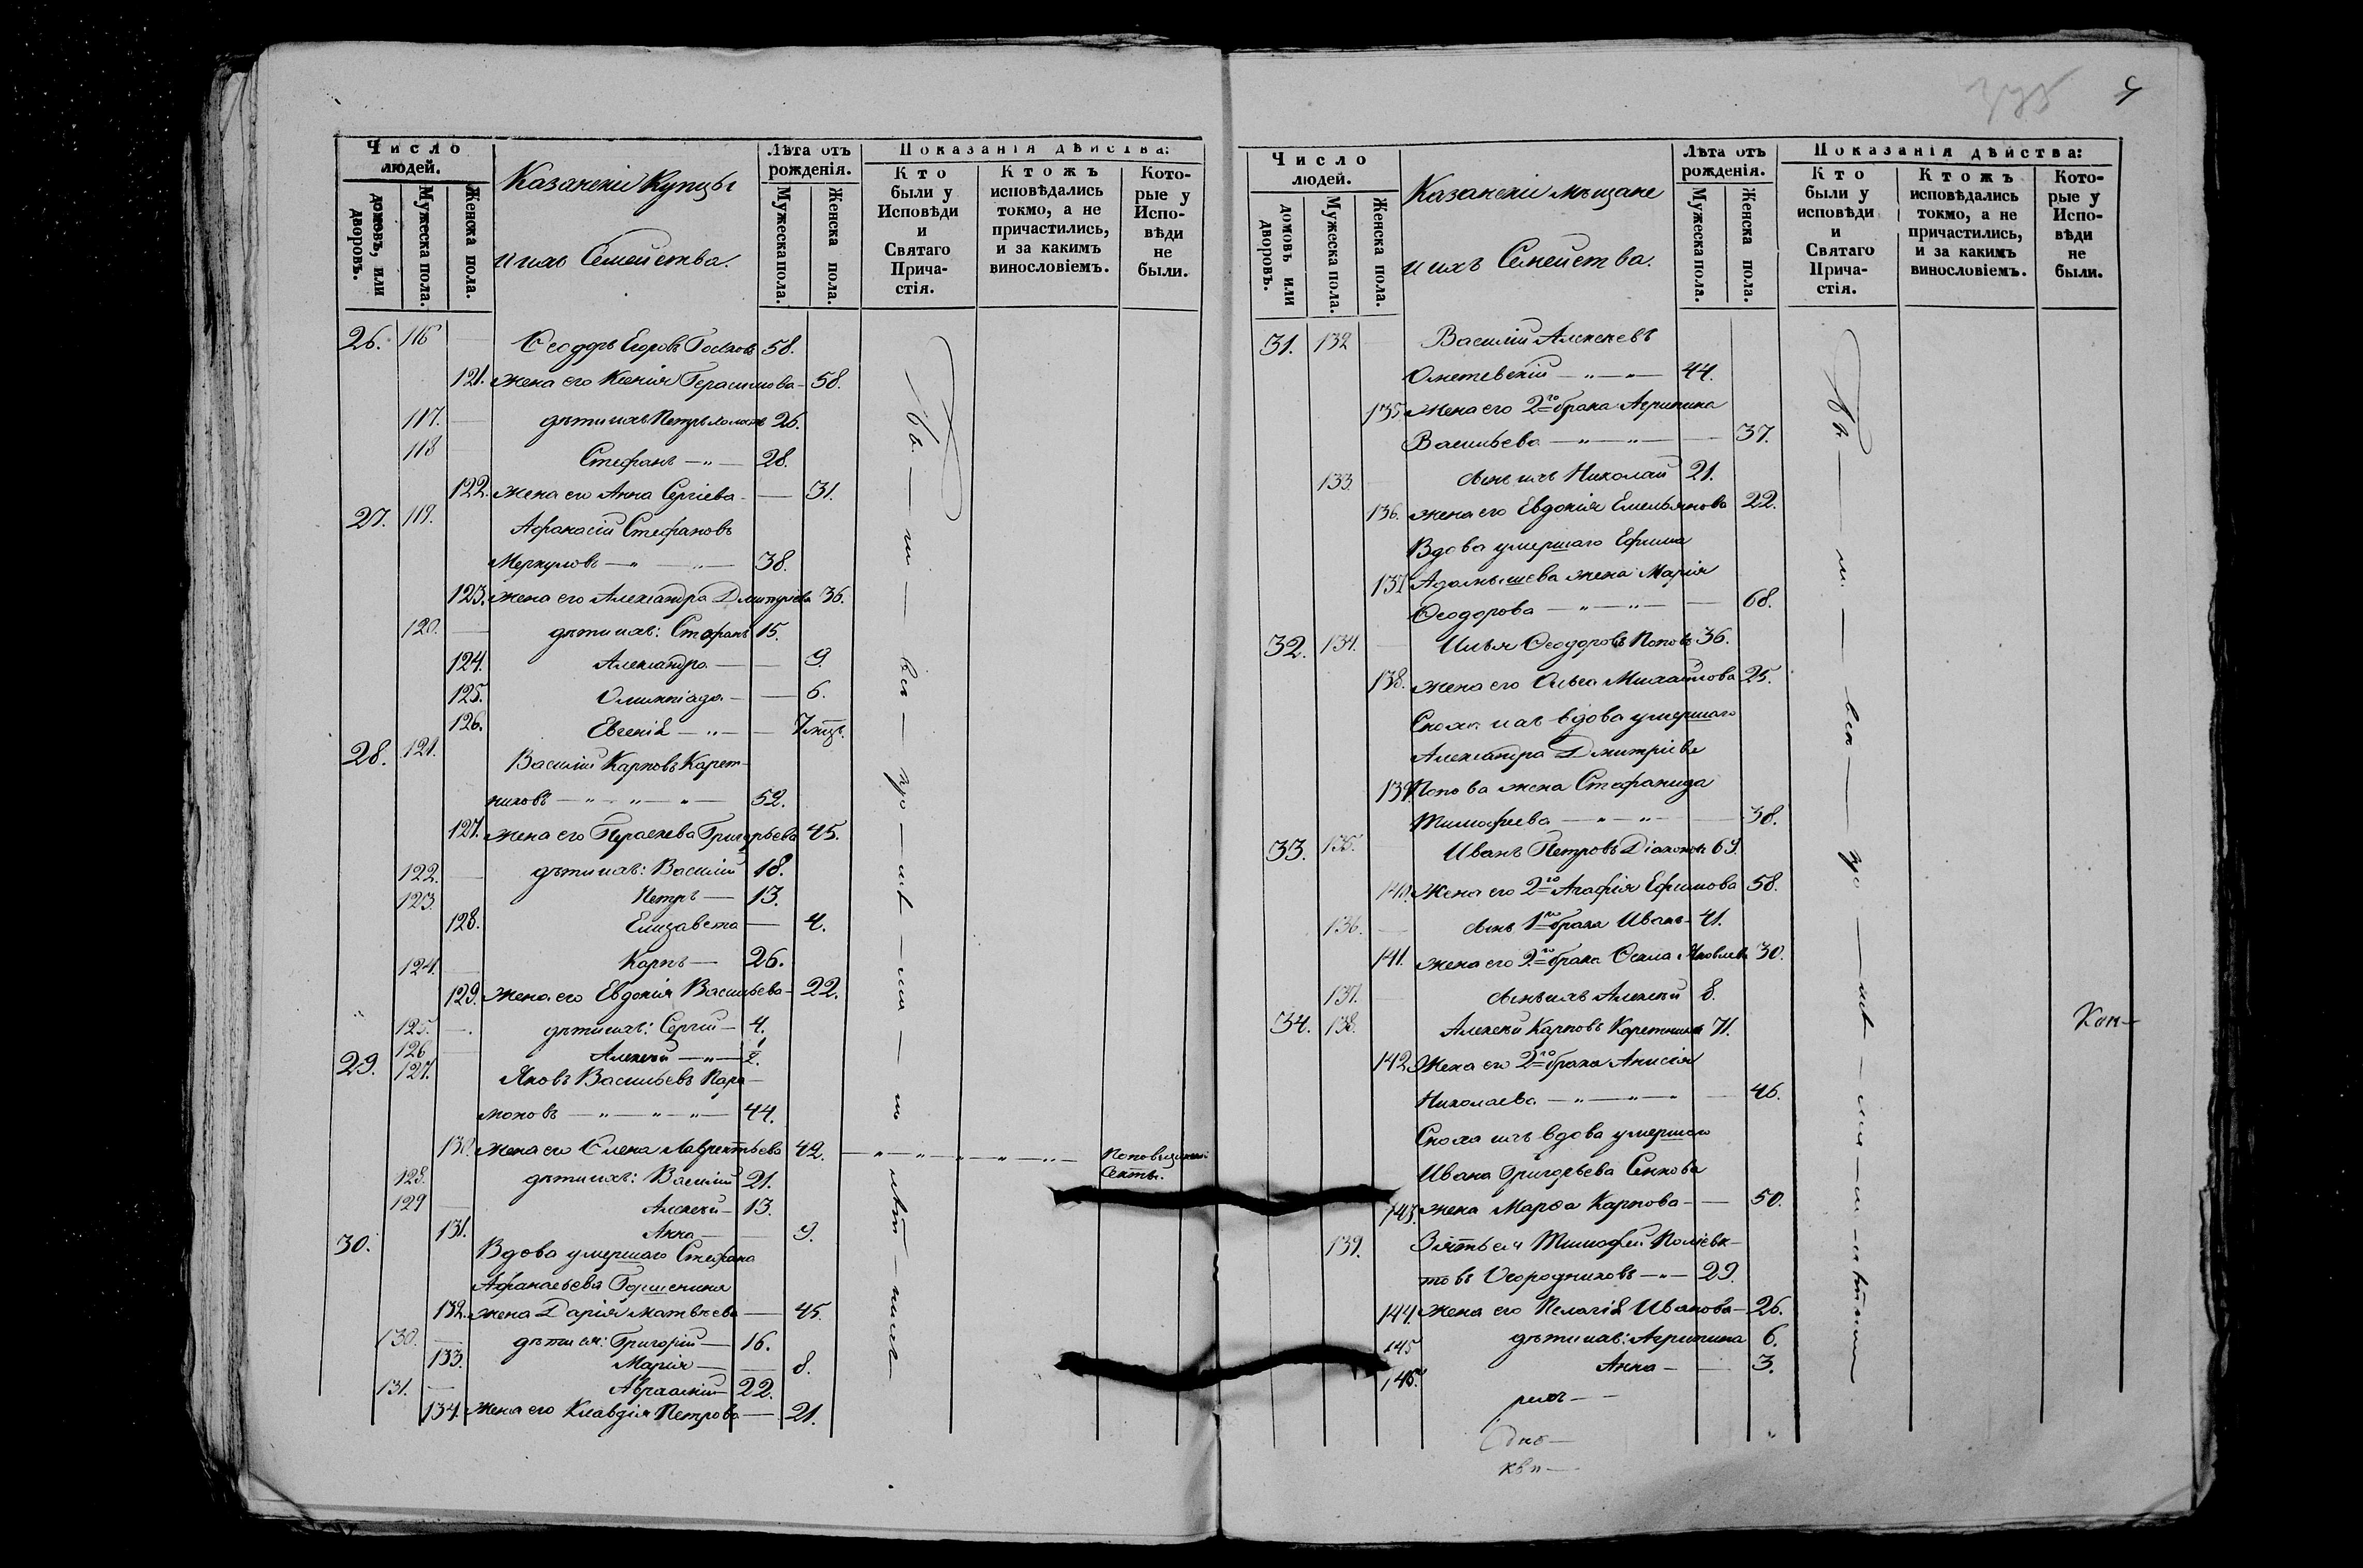 Число людей.
домовъ, или дворовъ.
Мужеска пола.
Женска пола.
Казанскіе Купцы
и ихъ Семейства.
Лѣта отъ рожденія.
Мужеска пола.
Женска пола.
Показанія дѣйства:
Кто были у Исповѣди и Святаго Причастія.
Ктожъ исповѣдались токмо, а не причастились, и за какимъ винословіемъ.
Которые у Исповѣди не были.
26. 116 Ѳеодоръ Егоровъ 58.
121. жена его Ксенія Герасимова 58.
117. дѣти ихъ: Петръ 26.
118 Стефанъ 28.
122. жена его Анна Сергіева 31.
27. 119. Афанасій Стефановъ
Меркуловъ 38.
123. жена его Александра Дмитріева 36.
120. дѣти ихъ: Стефанъ 15.
124. Александра 9.
125. Олимпіада 6.
126. Евгенія 7 мѣс.
28. 121. Василій Карповъ Карет-
никовъ 52.
127. жена его Параскева Григорьева 45.
122. дѣти ихъ: Василій 18.
123. Петръ 13.
128. Елизавета 4.
124. Карпъ 26.
129. жена его Евдокія Васильева 22.
125. дѣти ихъ: Сергій 4.
126 Алексей
29. 127. Яковъ Васильевъ Пара-
моновъ 44.
130. жена его Елена Лаврентьева 42. Поповщинской
Секты.
128. дѣти ихъ: Василій 21.
129 Алексей 13.
131. Анна 9.
30. Вдова умершаго Стефана
Афанасьева Горшенина
132. жена Дарія Матвѣева 45.
130. дѣти ея: Григорій 16.
133. Марія 8.
131. Авраамій 22.
134. жена его Клавдія Петрова 21.
Число людей.
домовъ или дворовъ.
Мужеска пола.
Женска пола.
Казанскіе мѣщане
и ихъ Семейства.
Лѣта отъ рожденія.
Мужеска пола.
Женска пола.
Показанія дѣйства:
Кто были у исповѣди и Святаго Причастія.
Ктожъ исповѣдались токмо, а не причастились, и за какимъ винословіемъ.
Которые у Исповѣди не были.
31. 132 Василій Алексеевъ
Ометевскій 44.
135. жена его 2го брака Агрипина
Васильева 37.
133. сынъ ихъ Николай 21.
136. жена его Евдокія Емельянова 22.
Вдова умершаго Ефима
137 Адамышева жена Марія
Ѳеодорова 68.
32. 134. Илья Ѳеодоровъ Поповъ 36.
138. жена его Ольга Михайлова 25.
Сноха ихъ вдова умершаго
Александра Дмитріева
139. Попова жена Стефанида
Тимофеева 38.
33. 135. Иванъ Петровъ Діаконовъ 69.
140. Жена его 2го Агафія Ефимова 58.
136. сынъ 1го брака Иванъ 41.
141. жена его 2го брака Ѳекла Яковлева 30.
137. сынъ ихъ Алексей 8.
34. 138. Алексей Карповъ Каретниковъ 71.
142. Жена его 2го брака Анисія
Николаева 46.
Сноха ихъ вдова умершаго
Ивана Григорьева Сенкова
143. жена Марѳа Карпова 50.
139. Зять ея Тимофей Поліевк-
товъ Огородниковъ 29.
144. жена его Пелагія Иванова 26.
145 дѣти ихъ: Агрипина 6.
146. Анна 3.